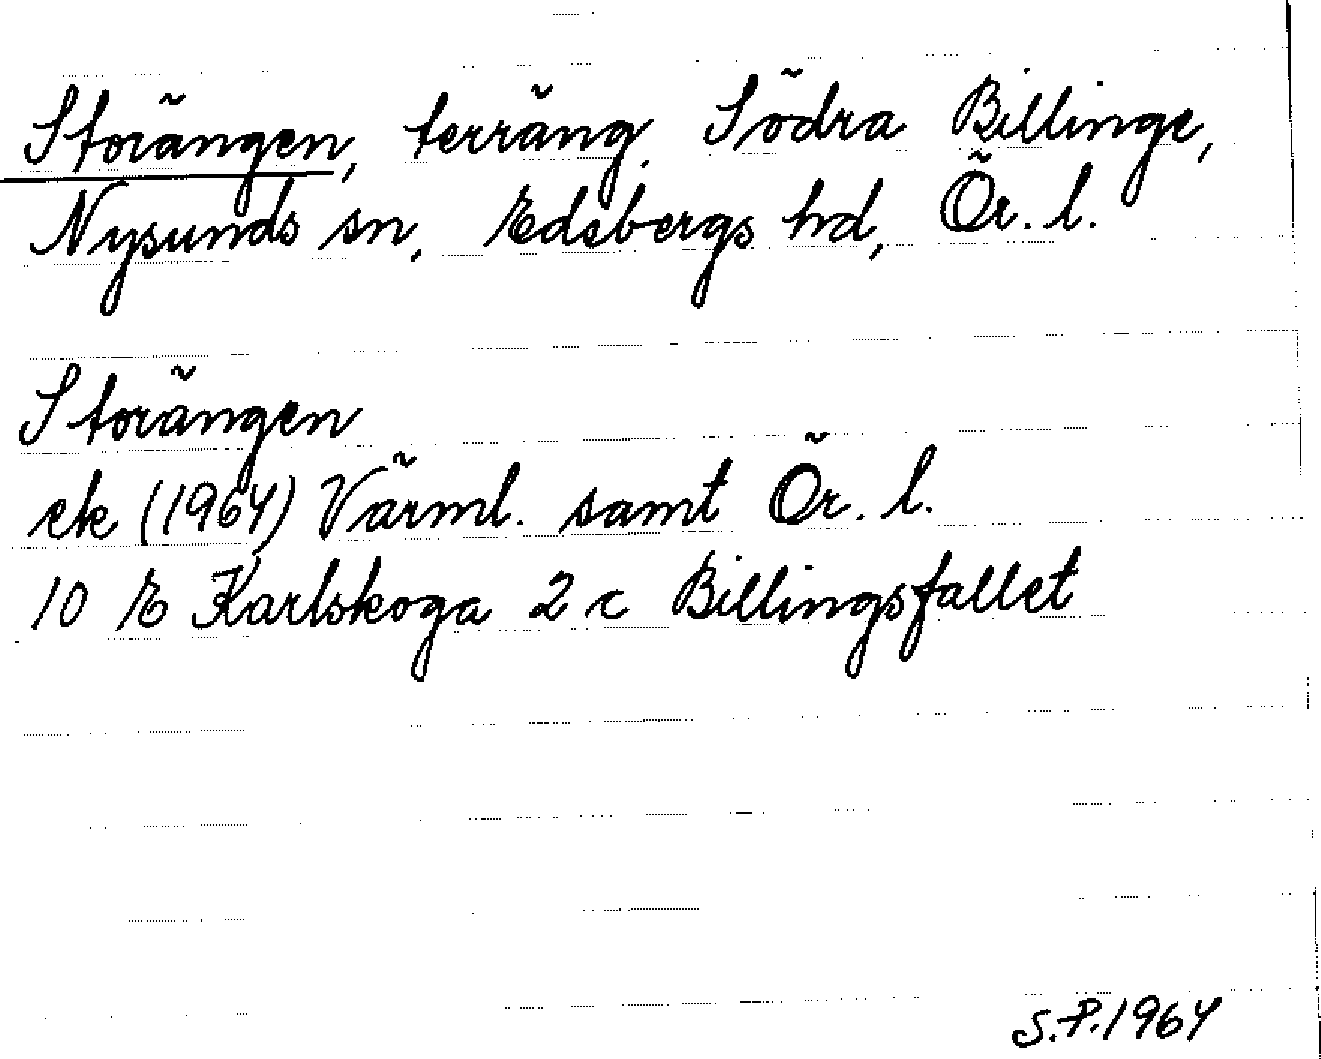 Storängen, terräng. Södra Billinge,
Nysunds sn, Edsbergs hd, Ör. l.
Storängen
ek (1964) Värml. samt Ör. l.
10 E Karlskoga 2 c Billingsfallet
S.P. 1964